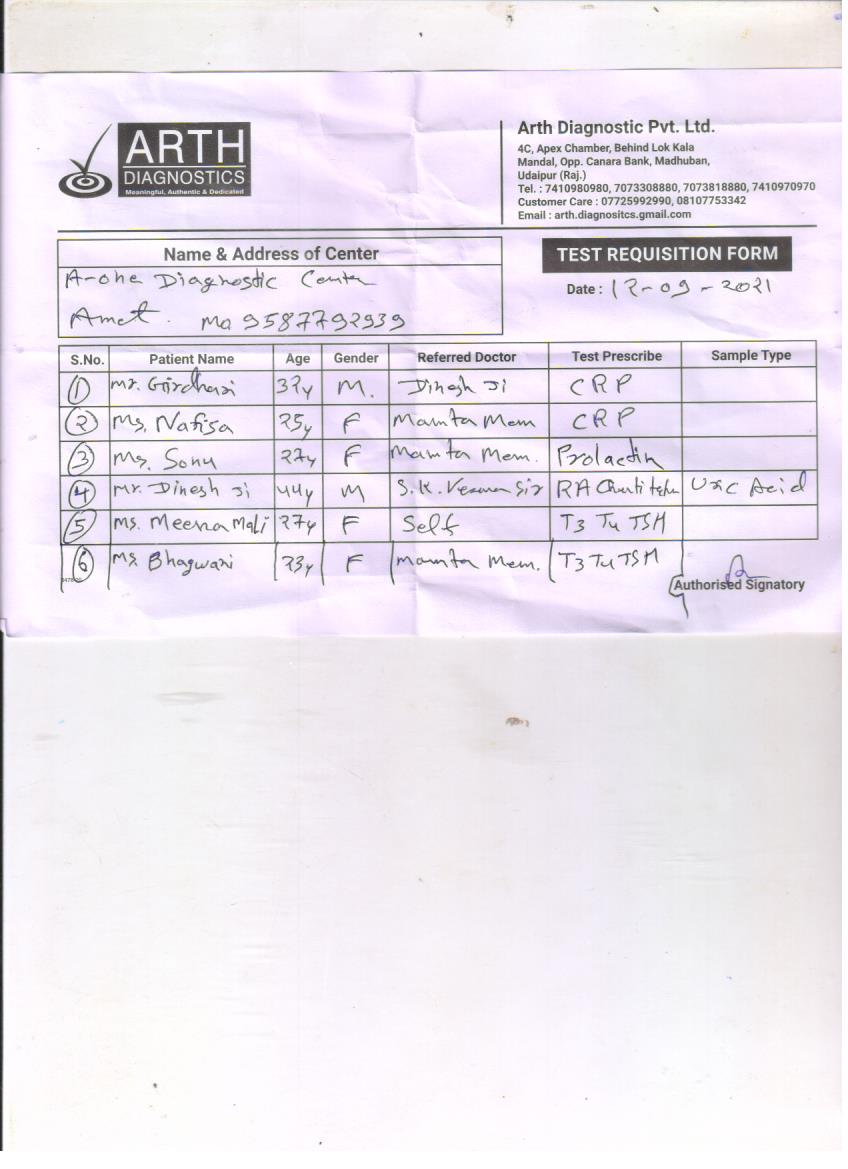 ARTH
DIAGNOSTICS
Meaningful, Authentic & Dedicated
Arth Diagnostic Pvt. Ltd.
4C, Apex Chamber, Behind Lok Kala
Mandal, Opp. Canara Bank, Madhuban,
Udaipur (Raj.)
Tel. : 7410980980, 7073308880, 7073818880, 7410970970
Customer Care : 07725992990, 08107753342
Email : arth.diagnositcs.gmail.com
Name & Address of Center
A-one Diagnostic Center
Amet. Mo 9587792939
TEST REQUISITION FORM
Date : 12-09-2021
S.No. Patient Name Age Gender Referred Doctor Test Prescribe Sample Type
1 Mr. Girdhari 32y M. Dinesh Ji CRP
2 Ms. Nafisa 25y F Mamta Mem CRP
3 Ms. Sonu 27y F Mamta Mem. Prolactin
4 Mr. Dinesh Ji 44y M S.K. Verma Sir RA Uric Acid
5 Ms. Meena Mali 27y F Self T3 T4 TSH
6 Ms. Bhagwani 23y F Mamta Mem. T3 T4 TSH
Authorised Signatory